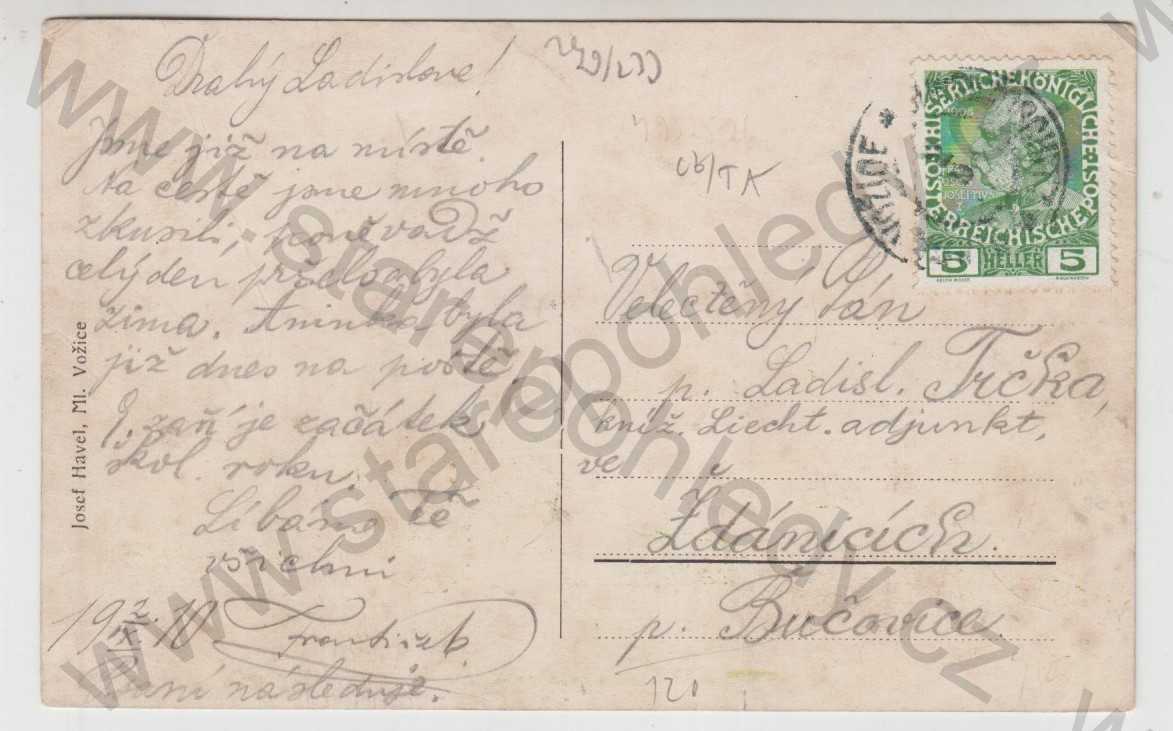 Drahý Ladislave!
Jsme již na místě.
Na cestě jsme mnoho
zkusili, poněvadž
celý den
zima. Aninka byla
již dnes na poště.
zaří je začátek
škol. roku.
Líbáme Tě
všichni
František.
Psaní následuje.
Josef Havel, Ml. Vožice
cb/TK
KAISERLICHE KÖNIGLICHE
ÖSTERREICHISCHE POST
5 HELLER 5
Velectěný Pán
p. Ladisl. Trčka,
kníž. Liecht. adjunkt,
ve
Ždánicích.
p. Bučovice.
120
www.starepohledy.cz